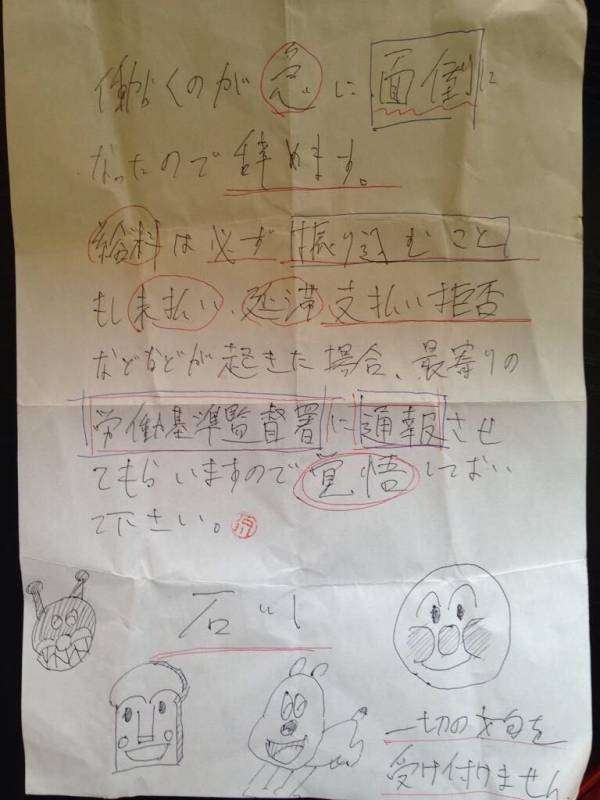 働らくのが急に面倒に
なったので辞めます。
給料は必ず振り込むこと
もし未払い、延滞支払い拒否
などなどが起きた場合、最寄りの
労働基準監督署に通報させ
てもらいますので覚悟しておい
て下さい。
一切の文句を
受け付けません。